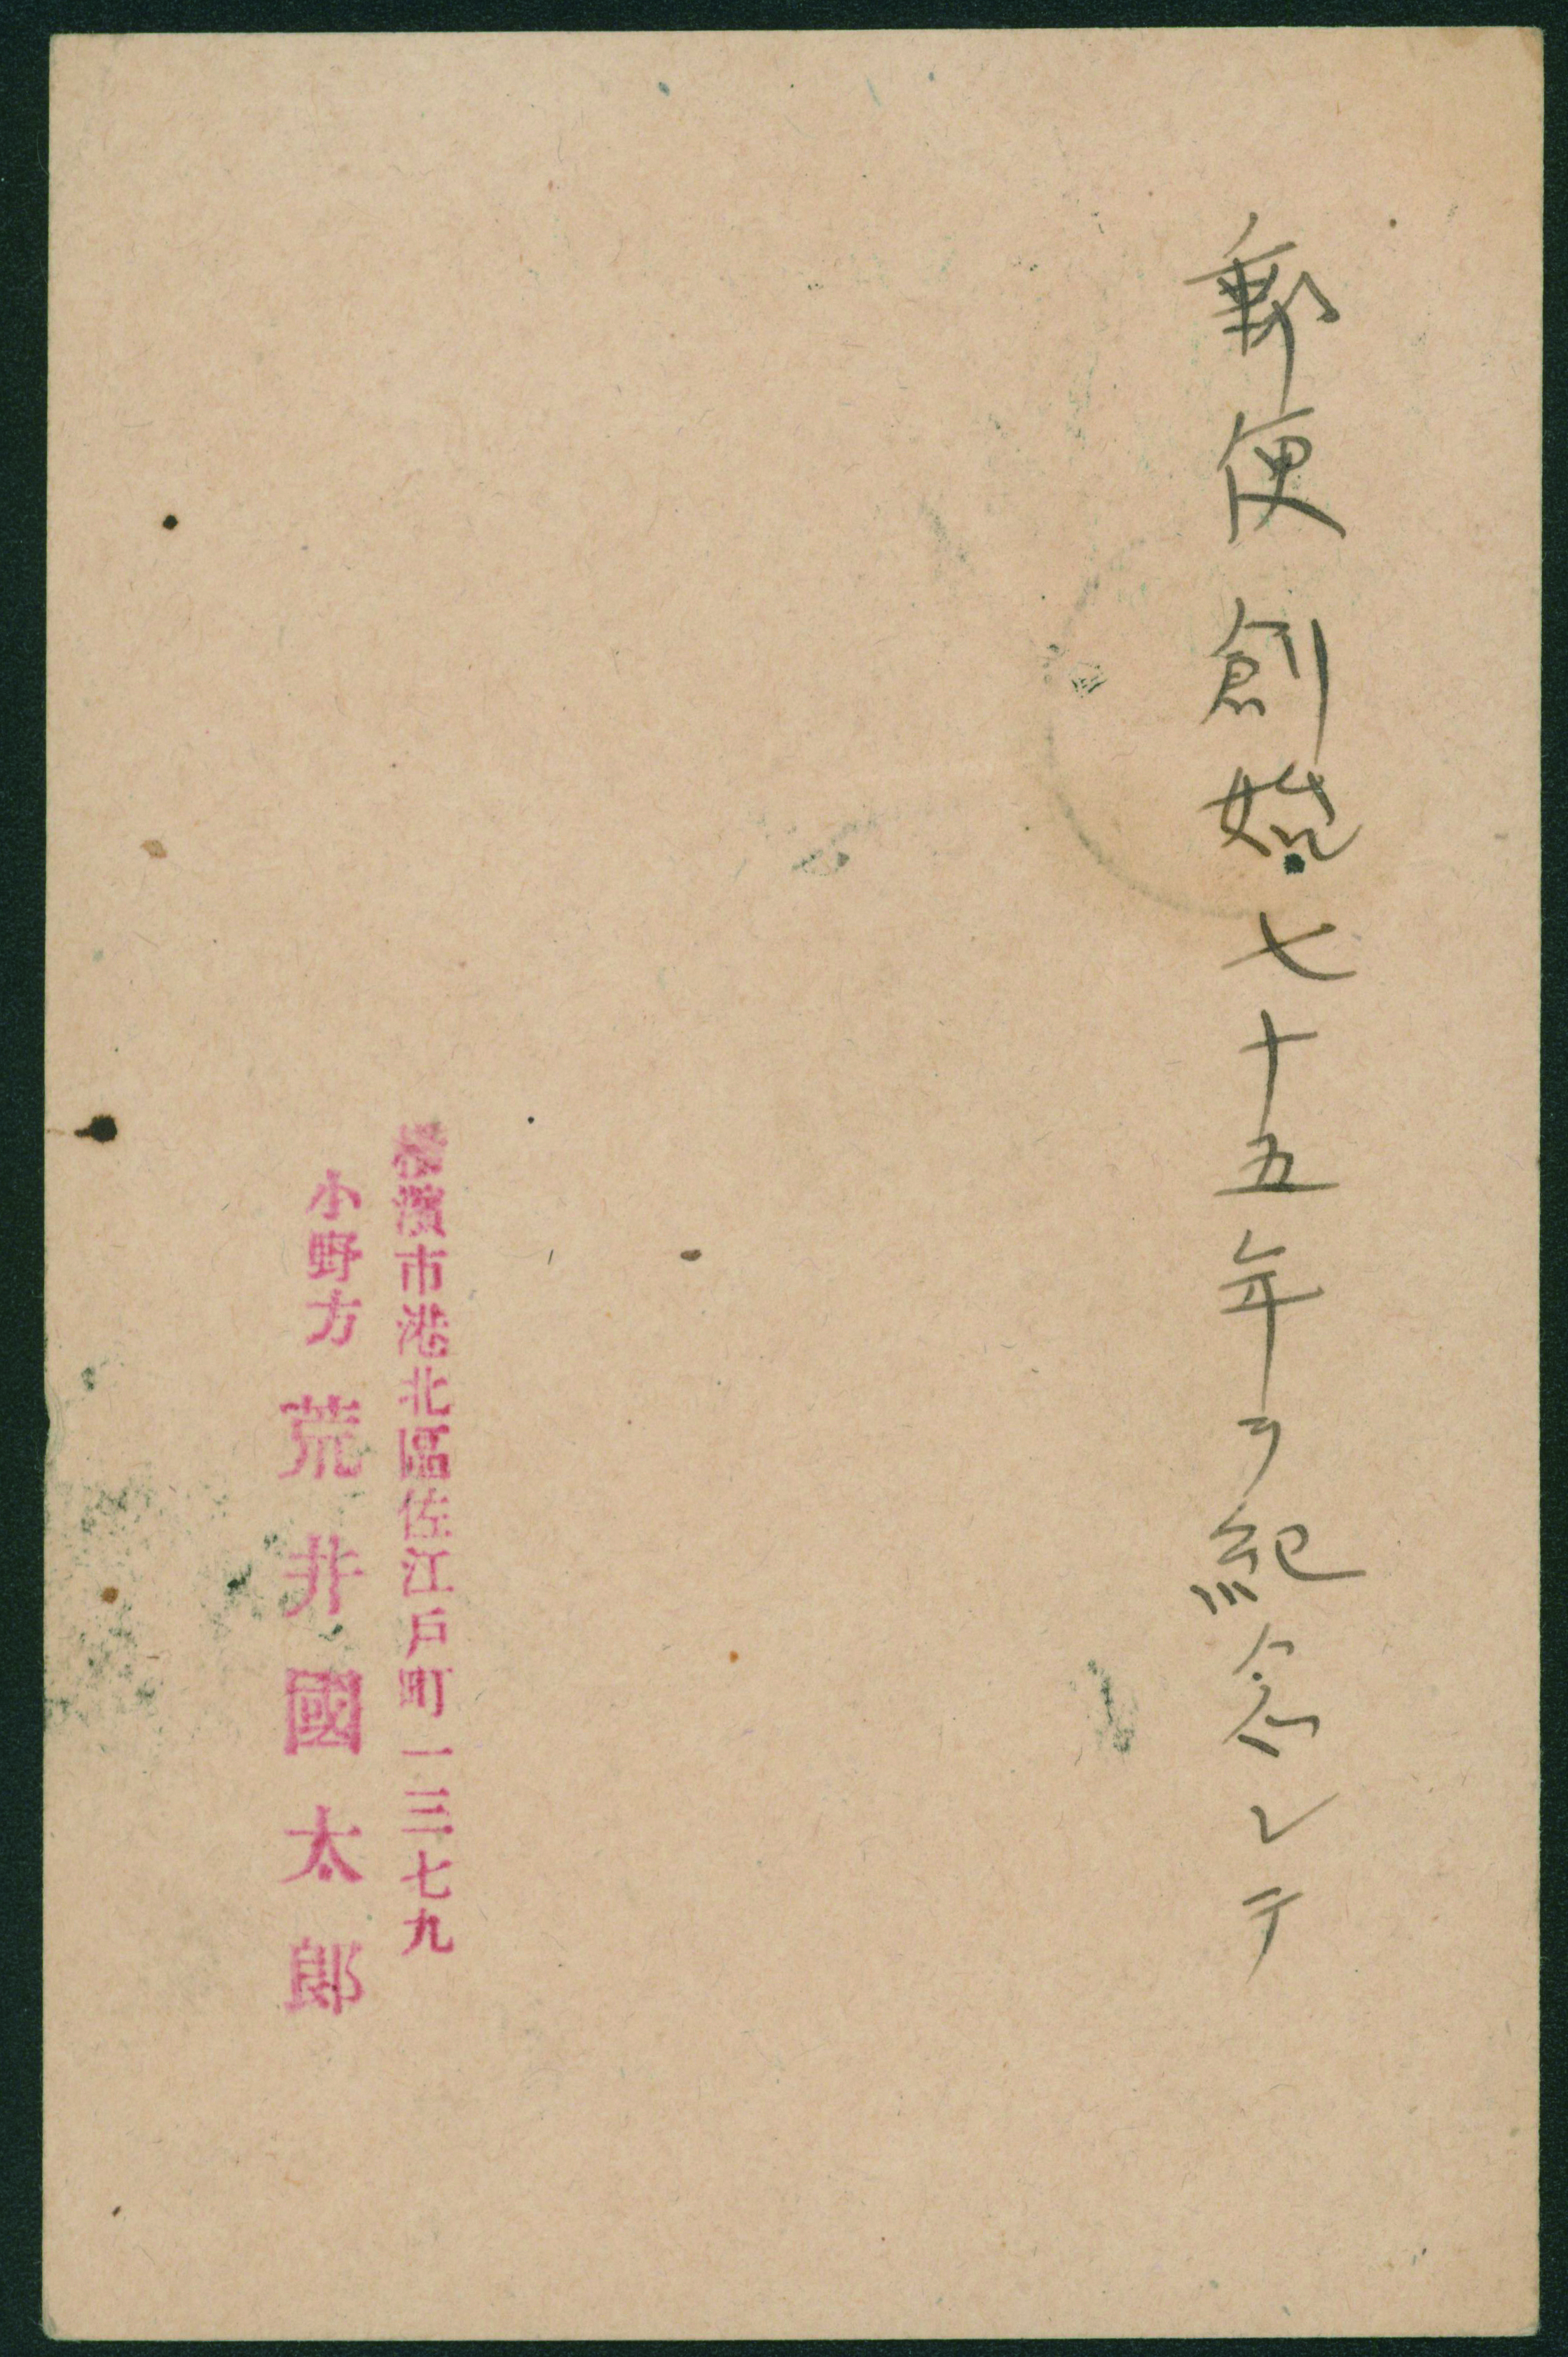 郵便創始七十五年ヲ紀念シテ
横濱市港北區佐江戸町一三七九
小野方 荒井國太郎